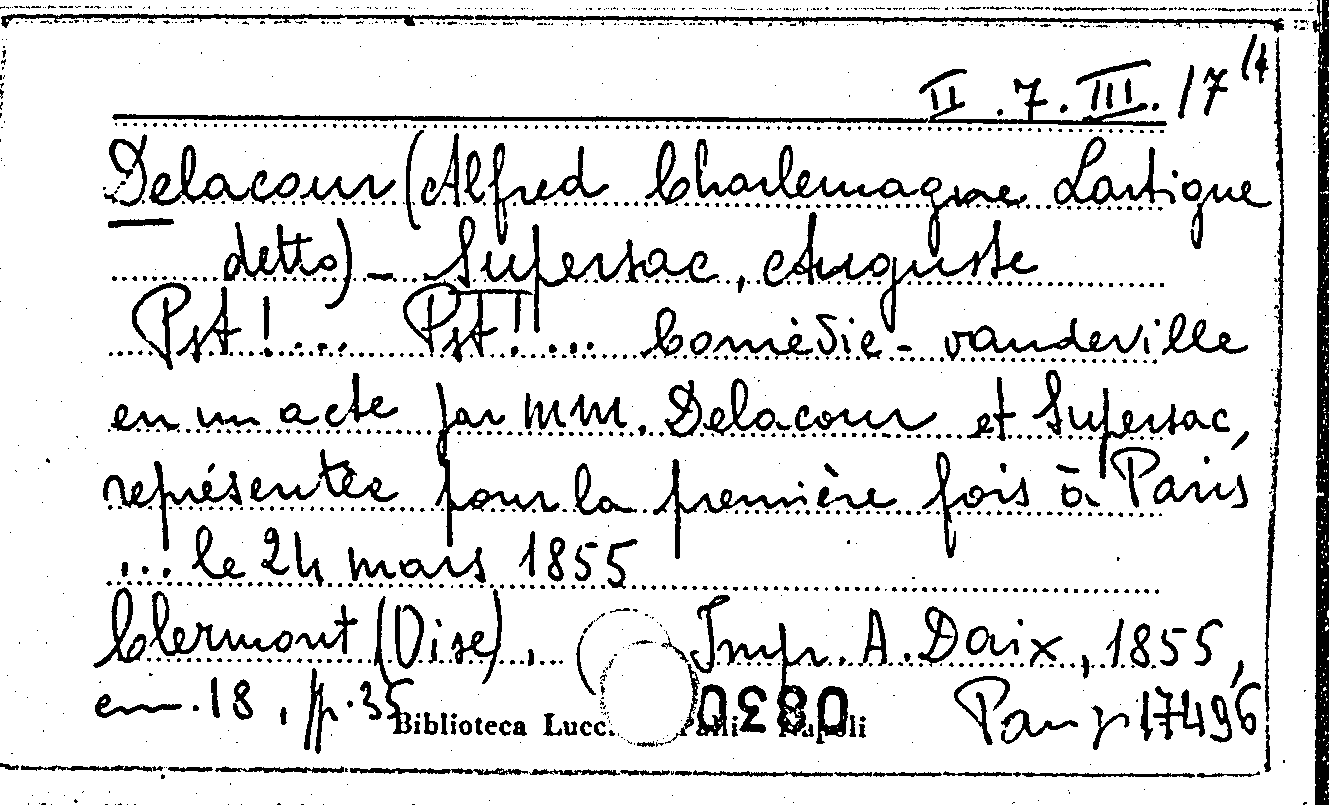 II.7.III.17/4
Delacour (Alfred Charlemagne Lartigue
detto) - Supersac, Auguste
Pst!... Pst!... Comédie-vaudeville
en un acte par MM. Delacour et Supersac,
représentée pour la première fois à Paris
... le 24 mars 1855
Clermont (Oise), Imp. A. Daix, 1855,
cm. 18, pp. 35
Biblioteca Lucc. Palli Napoli
0380
17496